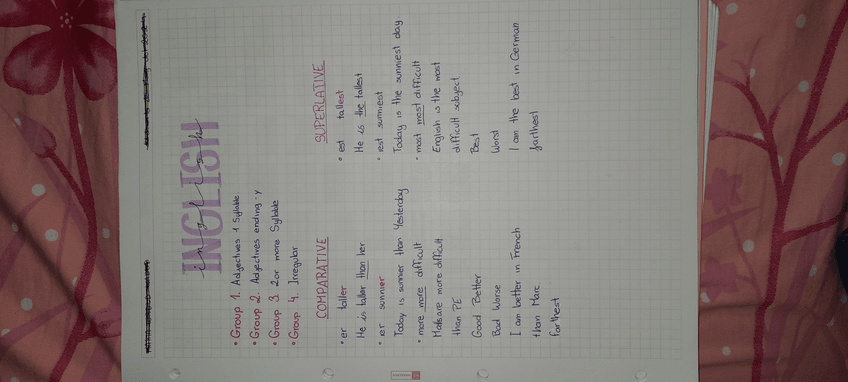 INGLISH
inglish
• Group 1. Adjectives 1 Syllable
• Group 2. Adjectives ending -y
• Group 3 2 or more Syllable
• Group 4. Irregular
COMPARATIVE
• er taller
He is taller than her
• ier sunnier
Today is sunnier than Yesterday
• more more difficult
Maths are more difficult
than PE
Good Better
Bad Worse
I am better in French
than Marc
farthest
SUPERLATIVE
• est tallest
He is the tallest
• iest sunniest
Today is the sunniest day.
• most most difficult
English is the most
difficult subject
Best
Worst
I am the best in German
farthest